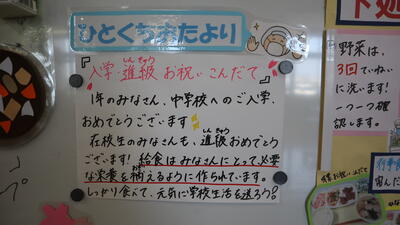 ひとくちおたより
『入学・進級お祝いこんだて』
しんきゅう
1年のみなさん、中学校へのご入学、
おめでとうございます
しんきゅう
在校生のみなさんも、進級おめでとう
ございます!給食はみなさんにとって必要
な栄養を補えるように作られています。
しっかり食べて、元気に学校生活を送ろう!
野菜は、
3回ていねい
に洗います!
一つ一つ確
認します。